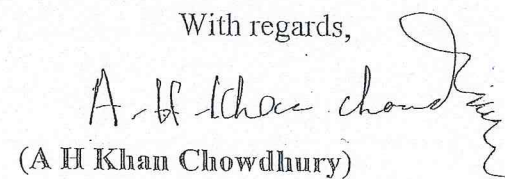 With regards,
A. H Khan Chowdhury
(A H Khan Chowdhury)